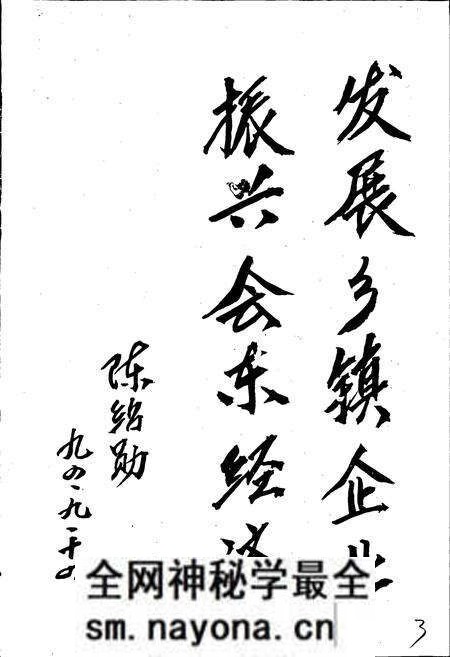 发展乡镇企业
振兴会东经济
陈绍勋
九四、九、
全网神秘学最全
sm.nayona.cn
3